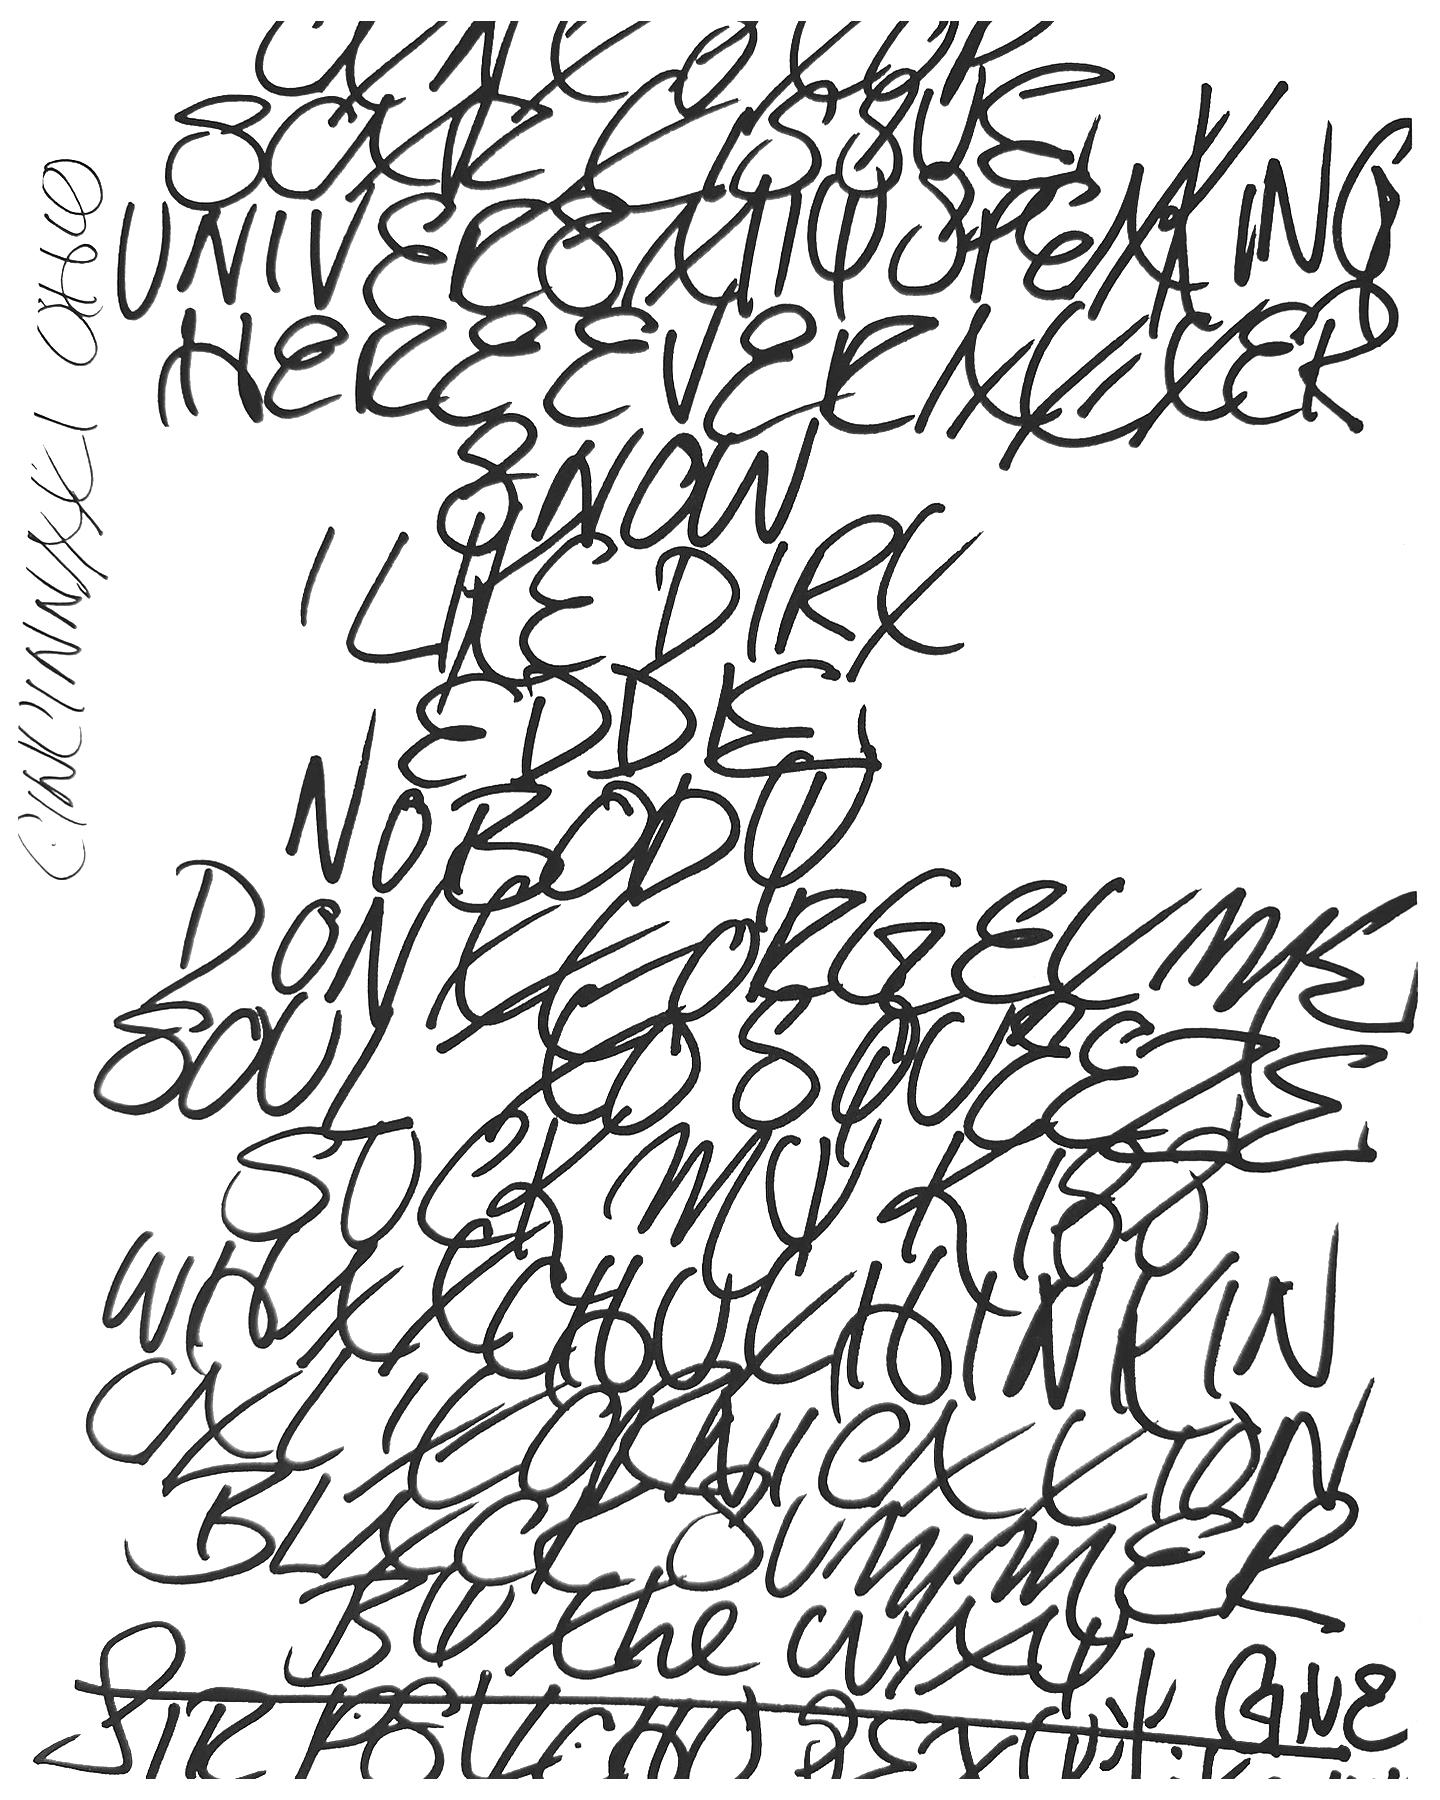 SCAR TISSUE
UNIVERSALLY SPEAKING
HERE EVER AFTER
SNOW
I LIKE DIRT
EDDIE
NOBODY
DON'T FORGET ME
SOUL TO SQUEEZE
SUCK MY KISS
WHATCHU THINKIN
CALIFORNICATION
BLACK SUMMER
BY the WAY
SIR PSYCHO SEXY
GINE
CINCINNATI OHIO